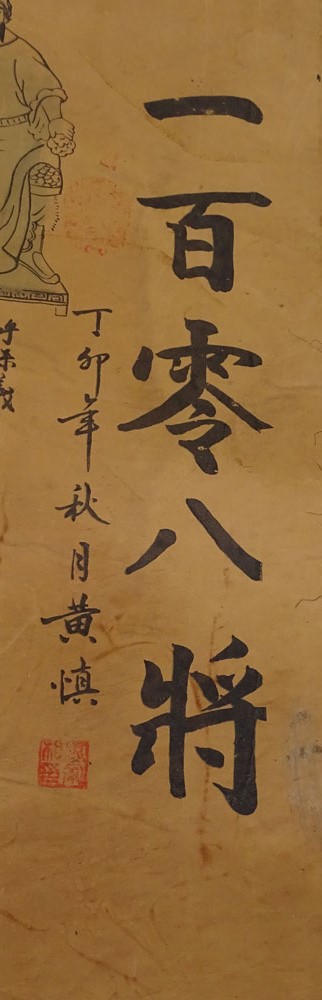 一百零八將
丁卯年秋月黄慎